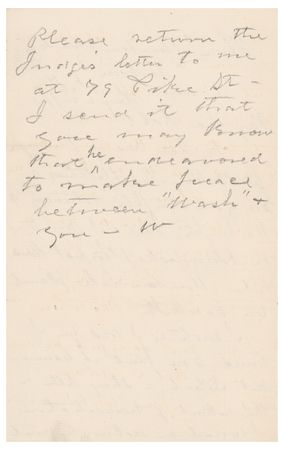 Please return the
Judge's letter to me
at 79 Pike St -
I send it that
you may know
that he endeavored
to make peace
between "Wash" +
you - W